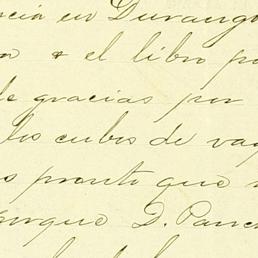 ncia en Durang
& el libro po
de gracias por
los cubos de va
s pronto que
porque D. Panc